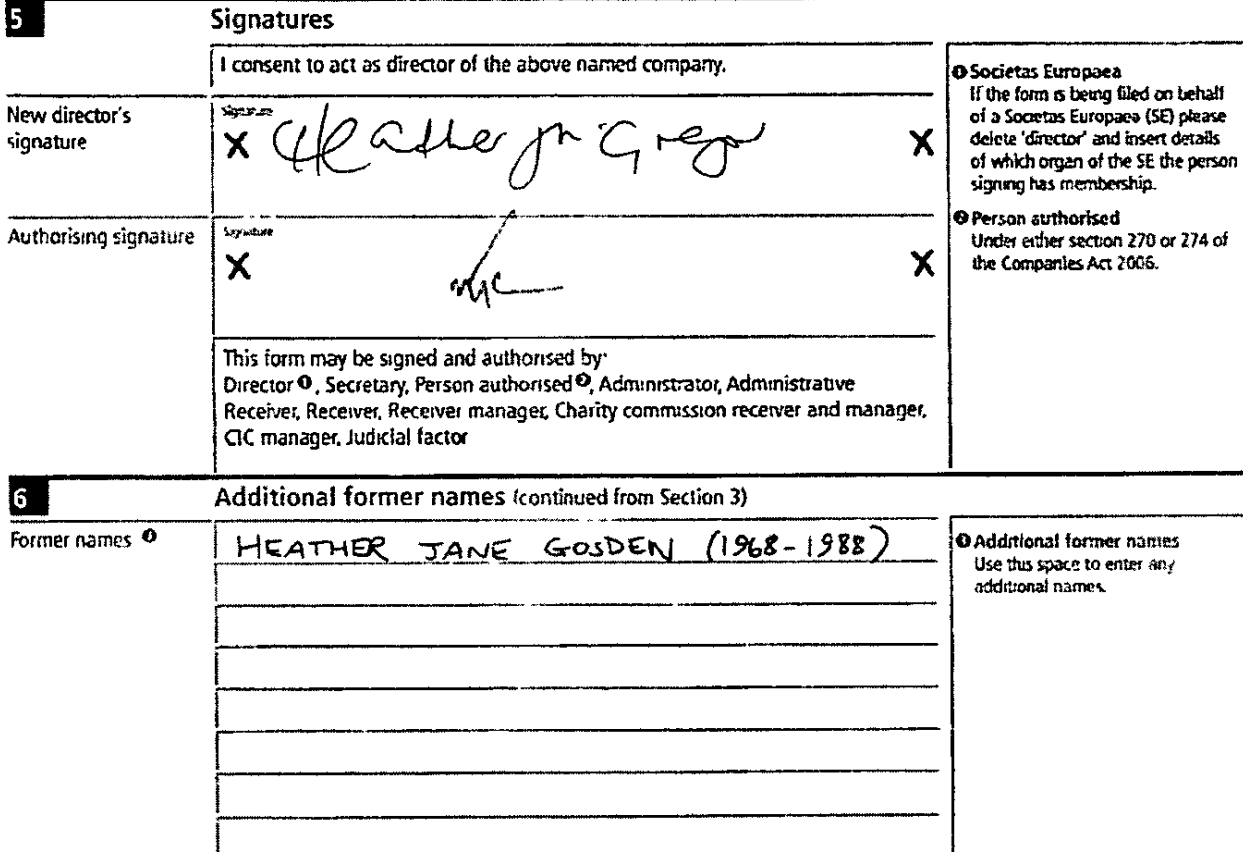 5 Signatures
I consent to act as director of the above named company.
New director's
signature
Signature
X Heather McGregor X
Authorising signature
Signature
X X
This form may be signed and authorised by:
Director ❶, Secretary, Person authorised ❷, Administrator, Administrative
Receiver, Receiver, Receiver manager, Charity commission receiver and manager,
CIC manager, Judicial factor
❶ Societas Europaea
If the form is being filed on behalf
of a Societas Europaea (SE) please
delete 'director' and insert details
of which organ of the SE the person
signing has membership.
❷ Person authorised
Under either section 270 or 274 of
the Companies Act 2006.
6 Additional former names (continued from Section 3)
Former names ❶
HEATHER JANE GOSDEN (1968-1988)
❶ Additional former names
Use this space to enter any
additional names.